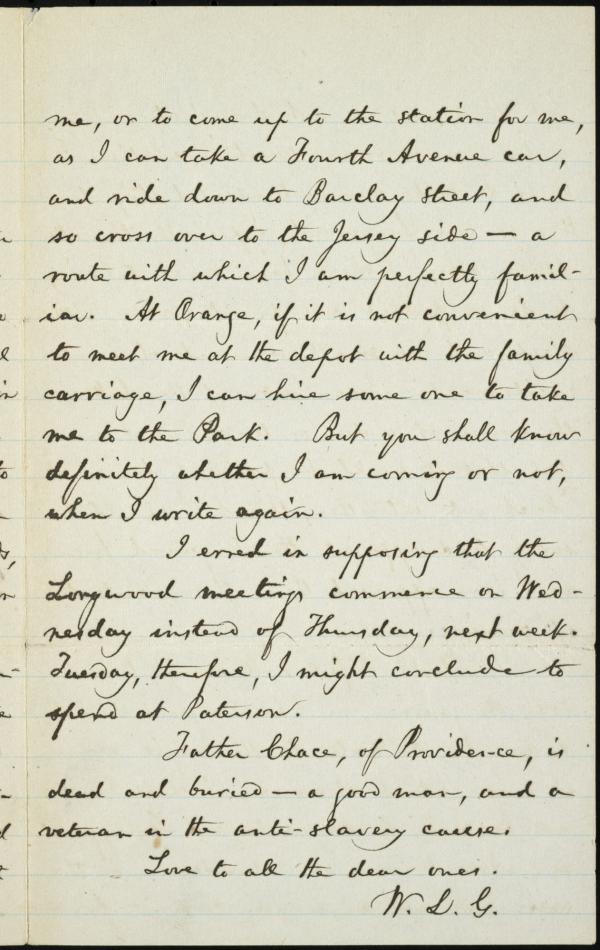 me, or to come up to the station for me,
as I can take a Fourth Avenue car,
and ride down to Barclay Street, and
so cross over to the Jersey side — a
route with which I am perfectly famil-
iar. At Orange, if it is not convenient
to meet me at the depot with the family
carriage, I can hire some one to take
me to the Park. But you shall know
definitely whether I am coming or not,
when I write again.
I erred in supposing that the
Longwood meetings commence on Wed-
nesday instead of Thursday, next week.
Tuesday, therefore, I might conclude to
spend at Paterson.
Father Chace, of Providence, is
dead and buried — a good man, and a
veteran in the anti-slavery cause.
Love to all the dear ones.
W. L. G.